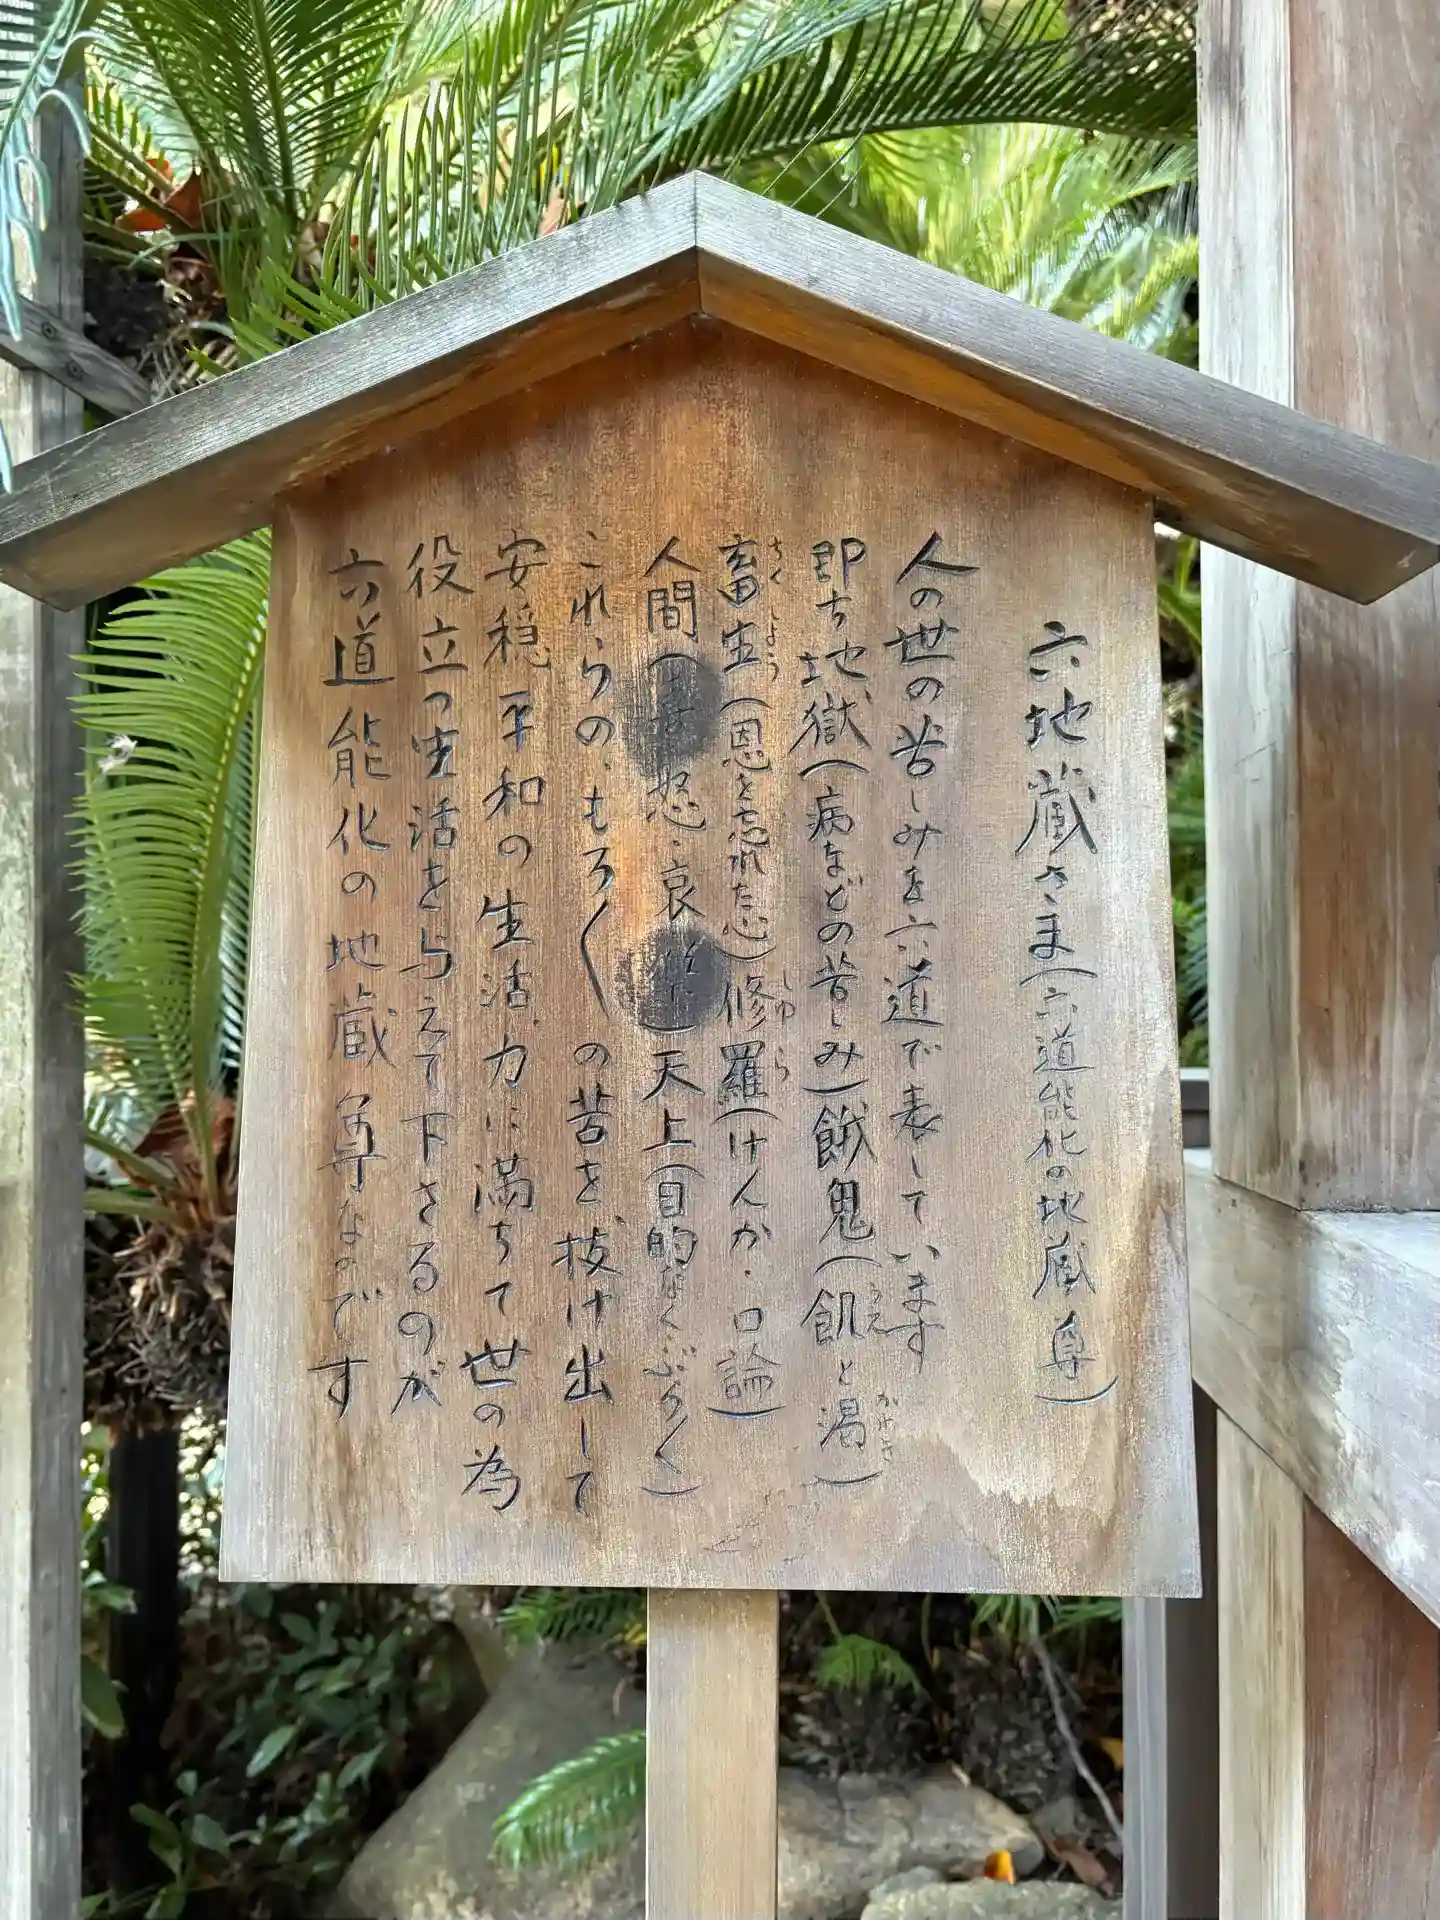 六地蔵さま(六道能化の地蔵尊)
人の世の苦しみを六道で表しています
即ち地獄(病などの苦しみ)餓鬼(飢と渇)
うえ
かわき
畜生(恩を忘れた心)修羅(けんか・口論)
ちくしょう
しゅら
人間( 怒・哀 )天上(目的なくぶらぶらく)
これらの、もろ〱の苦を抜け出して
安穏、平和の生活、力に満ちて世の為
役立つ生活を与えて下さるのが
六道能化の地蔵尊なのです